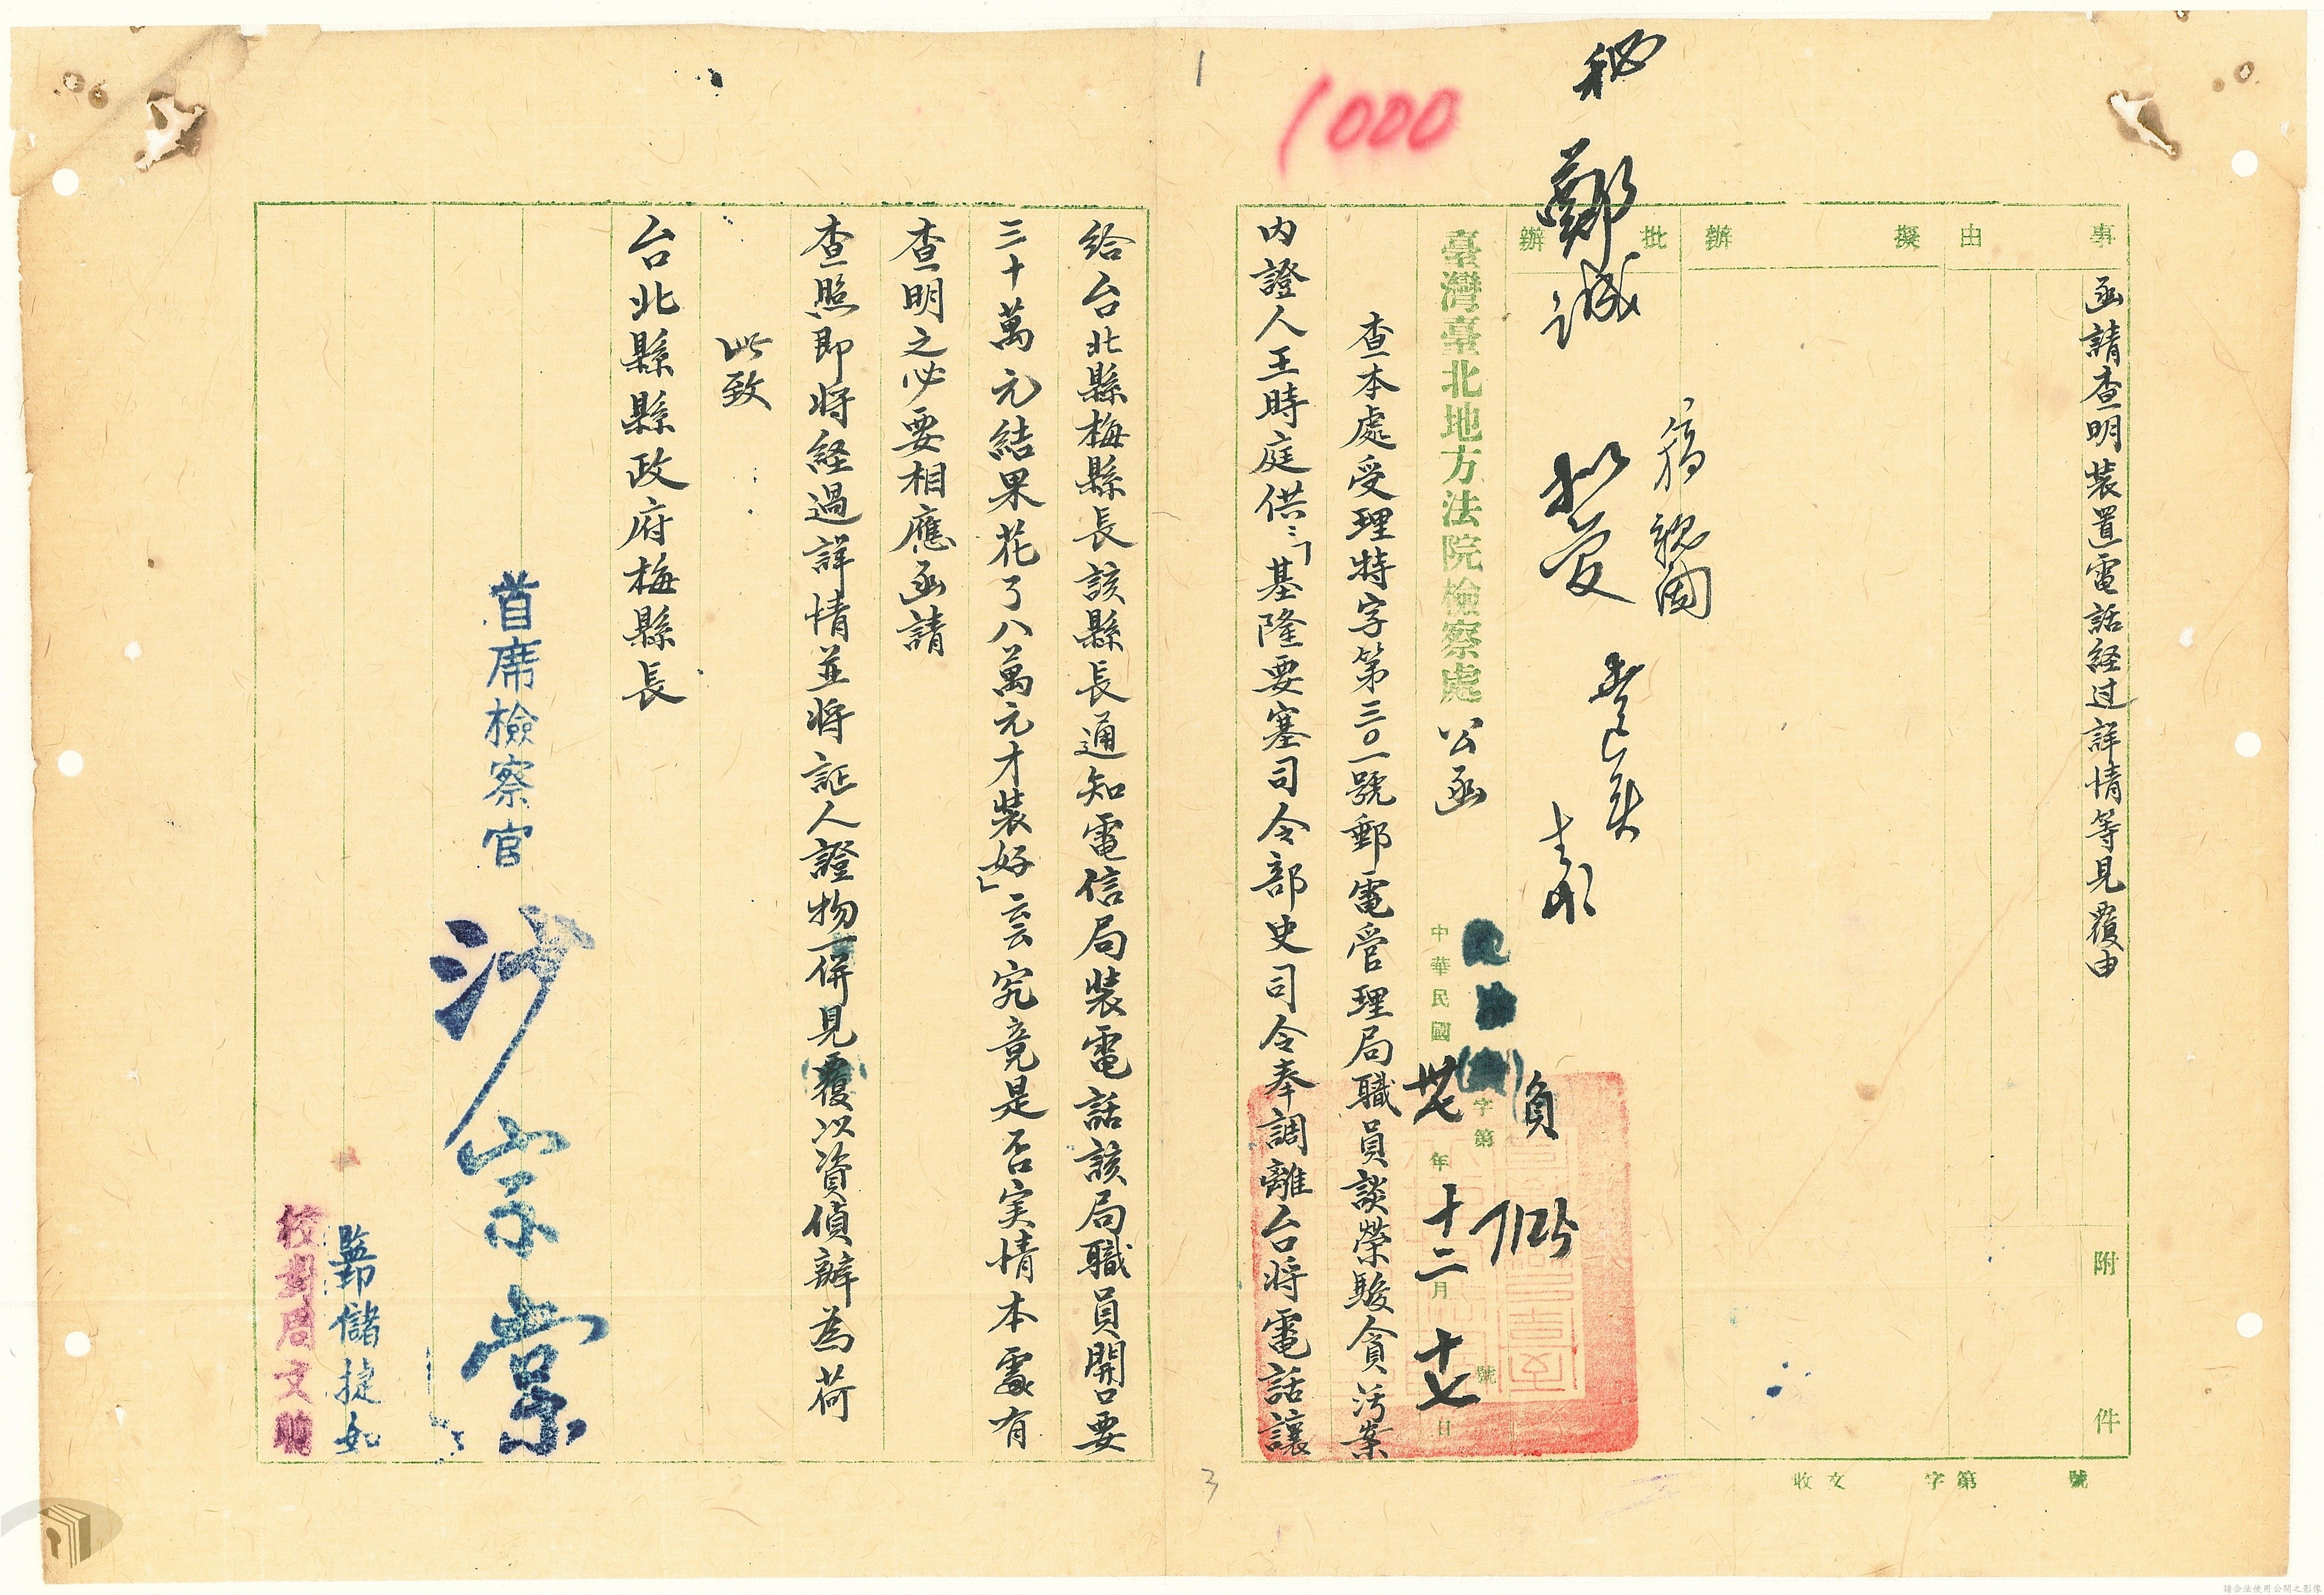 事由
函請查明裝置電話経过詳情等見覆由
附件
擬辦
批辦
臺灣臺北地方法院檢察處 公函
字第 號
中華民國 卅七 年 十二 月 十七 日
查本處受理特字第三〇一號郵電管理局職員談榮駿貪污案
內證人王時庭供：「基隆要塞司令部史司令奉調離台將電話讓
給台北縣梅縣長該縣長通知電信局裝電話該局職員開口要
三十萬元結果花了八萬元才裝好」云云究竟是否実情本處有
查明之必要相應函請
查照即將経過詳情並將証人證物一併見覆以資偵辦為荷
此致
台北縣縣政府梅縣長
首席檢察官 沙宗棠
監印儲捷如
校對周文
收文 字第 號
1000
1
3
請合法使用公開之影像